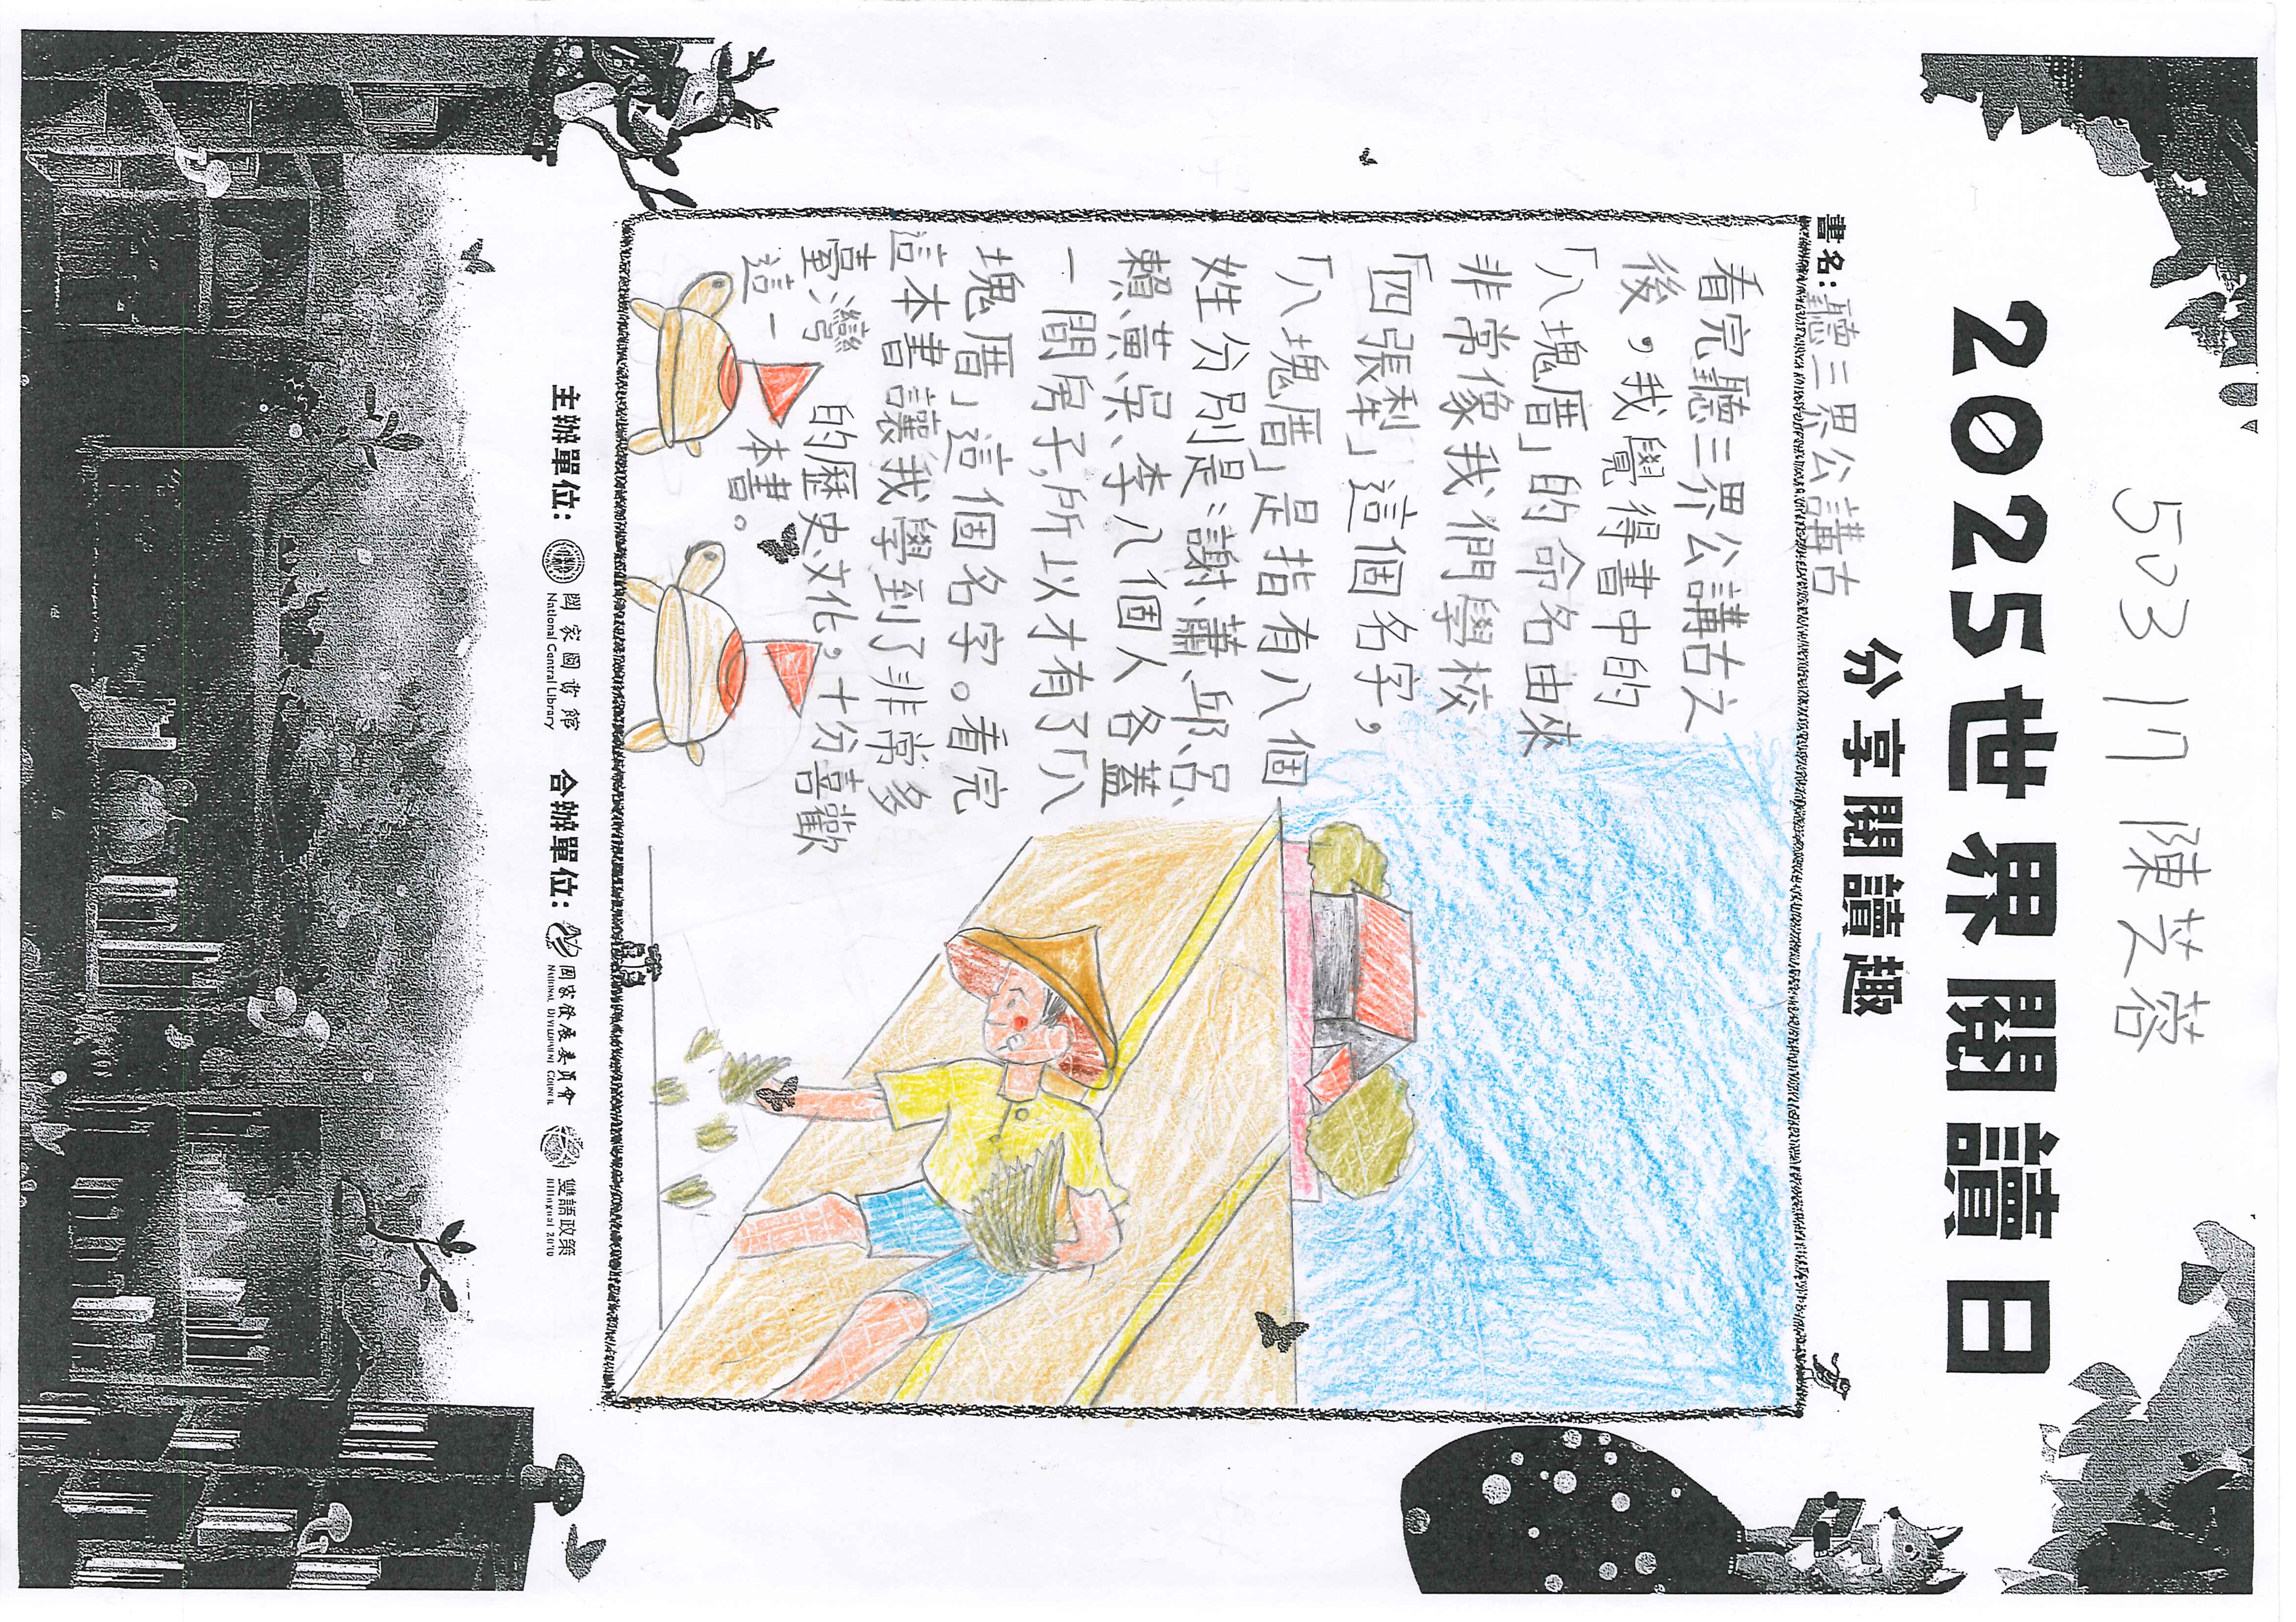 503 17 陳芝蓉
2025世界閱讀日
分享閱讀趣
書名:聽三界公講古
看完聽三界公講古之
後，我覺得書中的
「八塊厝」的命名由來
非常像我們學校
「四張犁」這個名字，
「八塊厝」是指有八個
姓分別是:謝、蕭、邱、呂、
賴、黃、吳、李八個人各蓋
一間房子,所以才有了「八
塊厝」這個名字。看完
這本書讓我學到了非常多
臺灣的歷史文化，十分喜歡
這一本書。
主辦單位: 國家圖書館 合辦單位: 國家發展委員會 雙語政策
National Central Library National Development Council Bilingual 2030